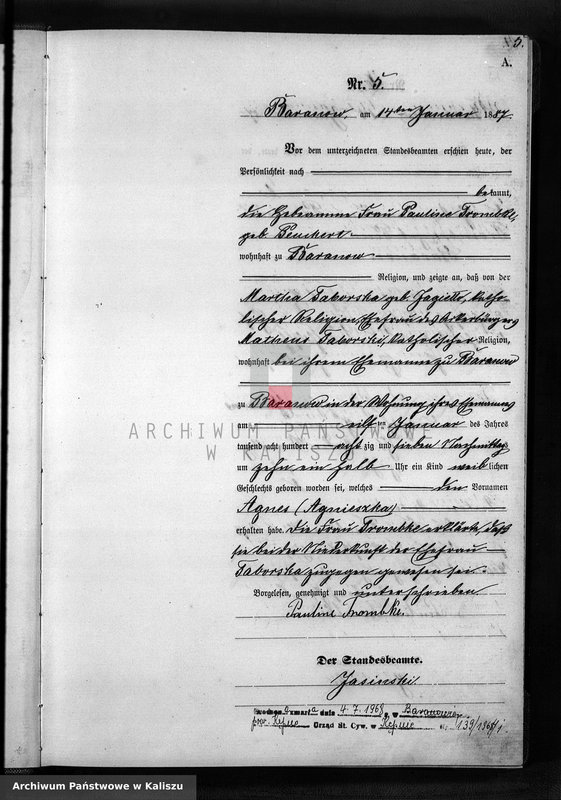 5.
A.
Nr. 5.
Baranow, am 14ten Januar 1887.
Vor dem unterzeichneten Standesbeamten erschien heute, der
Persönlichkeit nach
bekannt,
die Hebeamme Frau Pauline Trombke,
geb. Peuckert
wohnhaft zu Baranow
Religion, und zeigte an, daß von der
Martha Taborska geb. Jagiello, katho-
lischer Religion, Ehefrau des Ackerbürgers
Matheus Taborski, katholischer Religion,
wohnhaft bei ihrem Ehemanne zu Baranow
zu Baranow in der Wohnung ihres Ehemannes
am eilf ten Januar des Jahres
tausend acht hundert acht zig und sieben Nachmittag
um zehn ein halb Uhr ein Kind weib lichen
Geschlechts geboren worden sei, welches den Vornamen
Agnes (Agnieszka)
erhalten habe. Die Frau Trombke erklärte, daß
sie bei der Niederkunft der Ehefrau
Taborska zugegen gewesen sei.
Vorgelesen, genehmigt und unterschrieben
Pauline Trombke.
Der Standesbeamte.
Jasinski
zmarła dnia 4.7.1968 r. w Baranowie
pow. Kępno Urząd St. Cyw. w Kępnie 139/1968/1
ARCHIWUM PAŃSTWOWE
W KALISZU
Archiwum Państwowe w Kaliszu